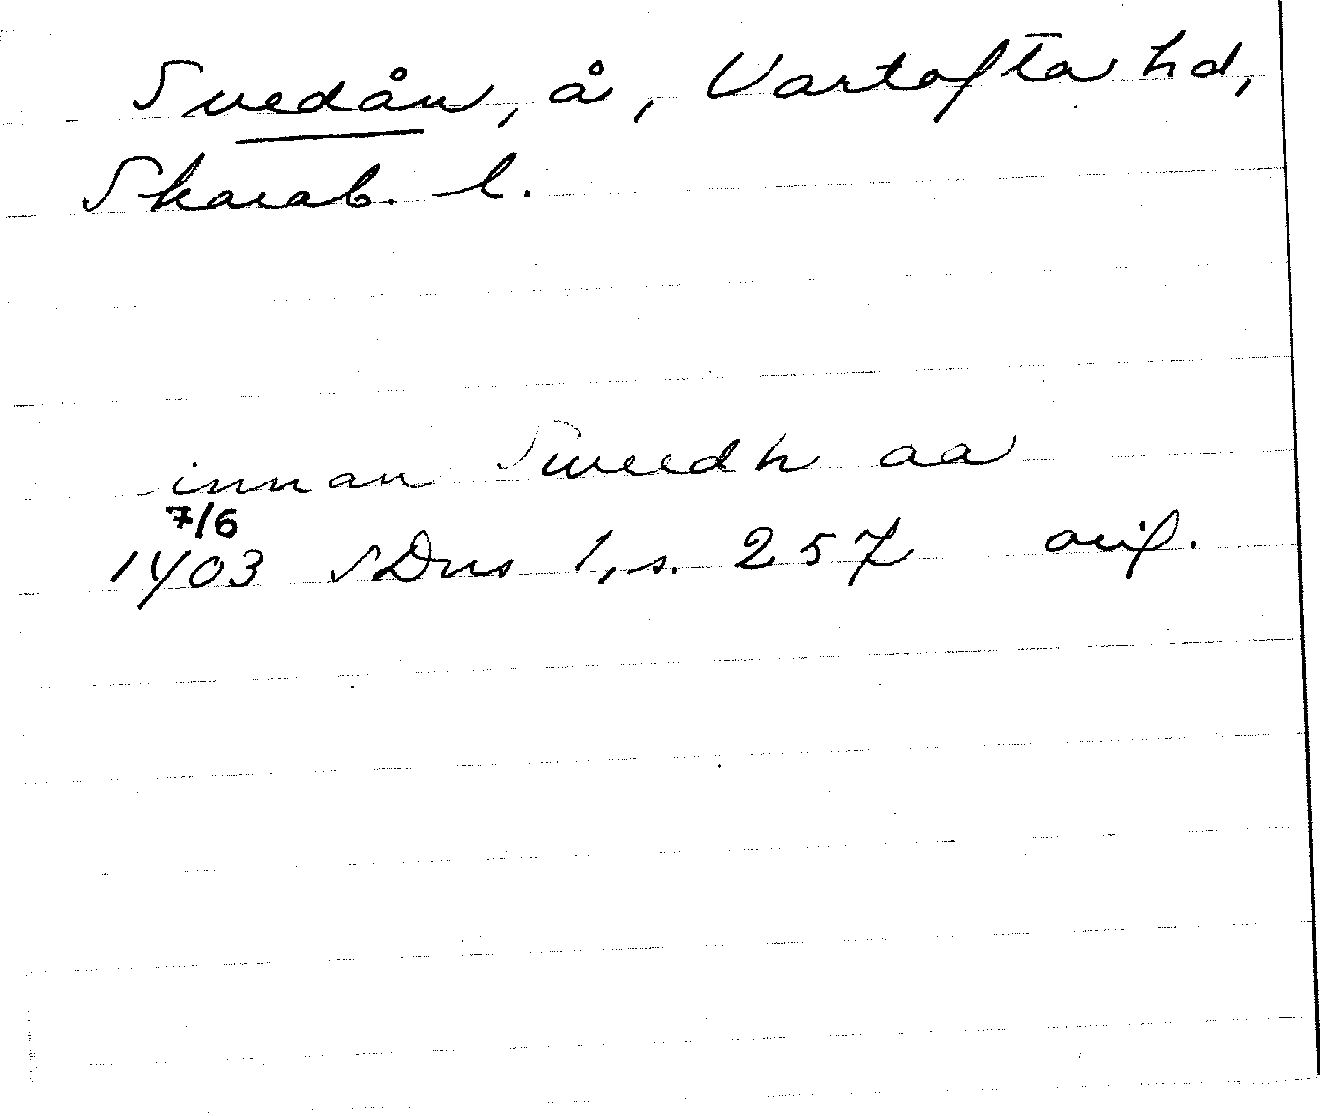 Svedån, å, Vartofta hd,
Skarab. l.
innan Sweedh aa
7/6
1403 SDns 1, s. 257 orig.